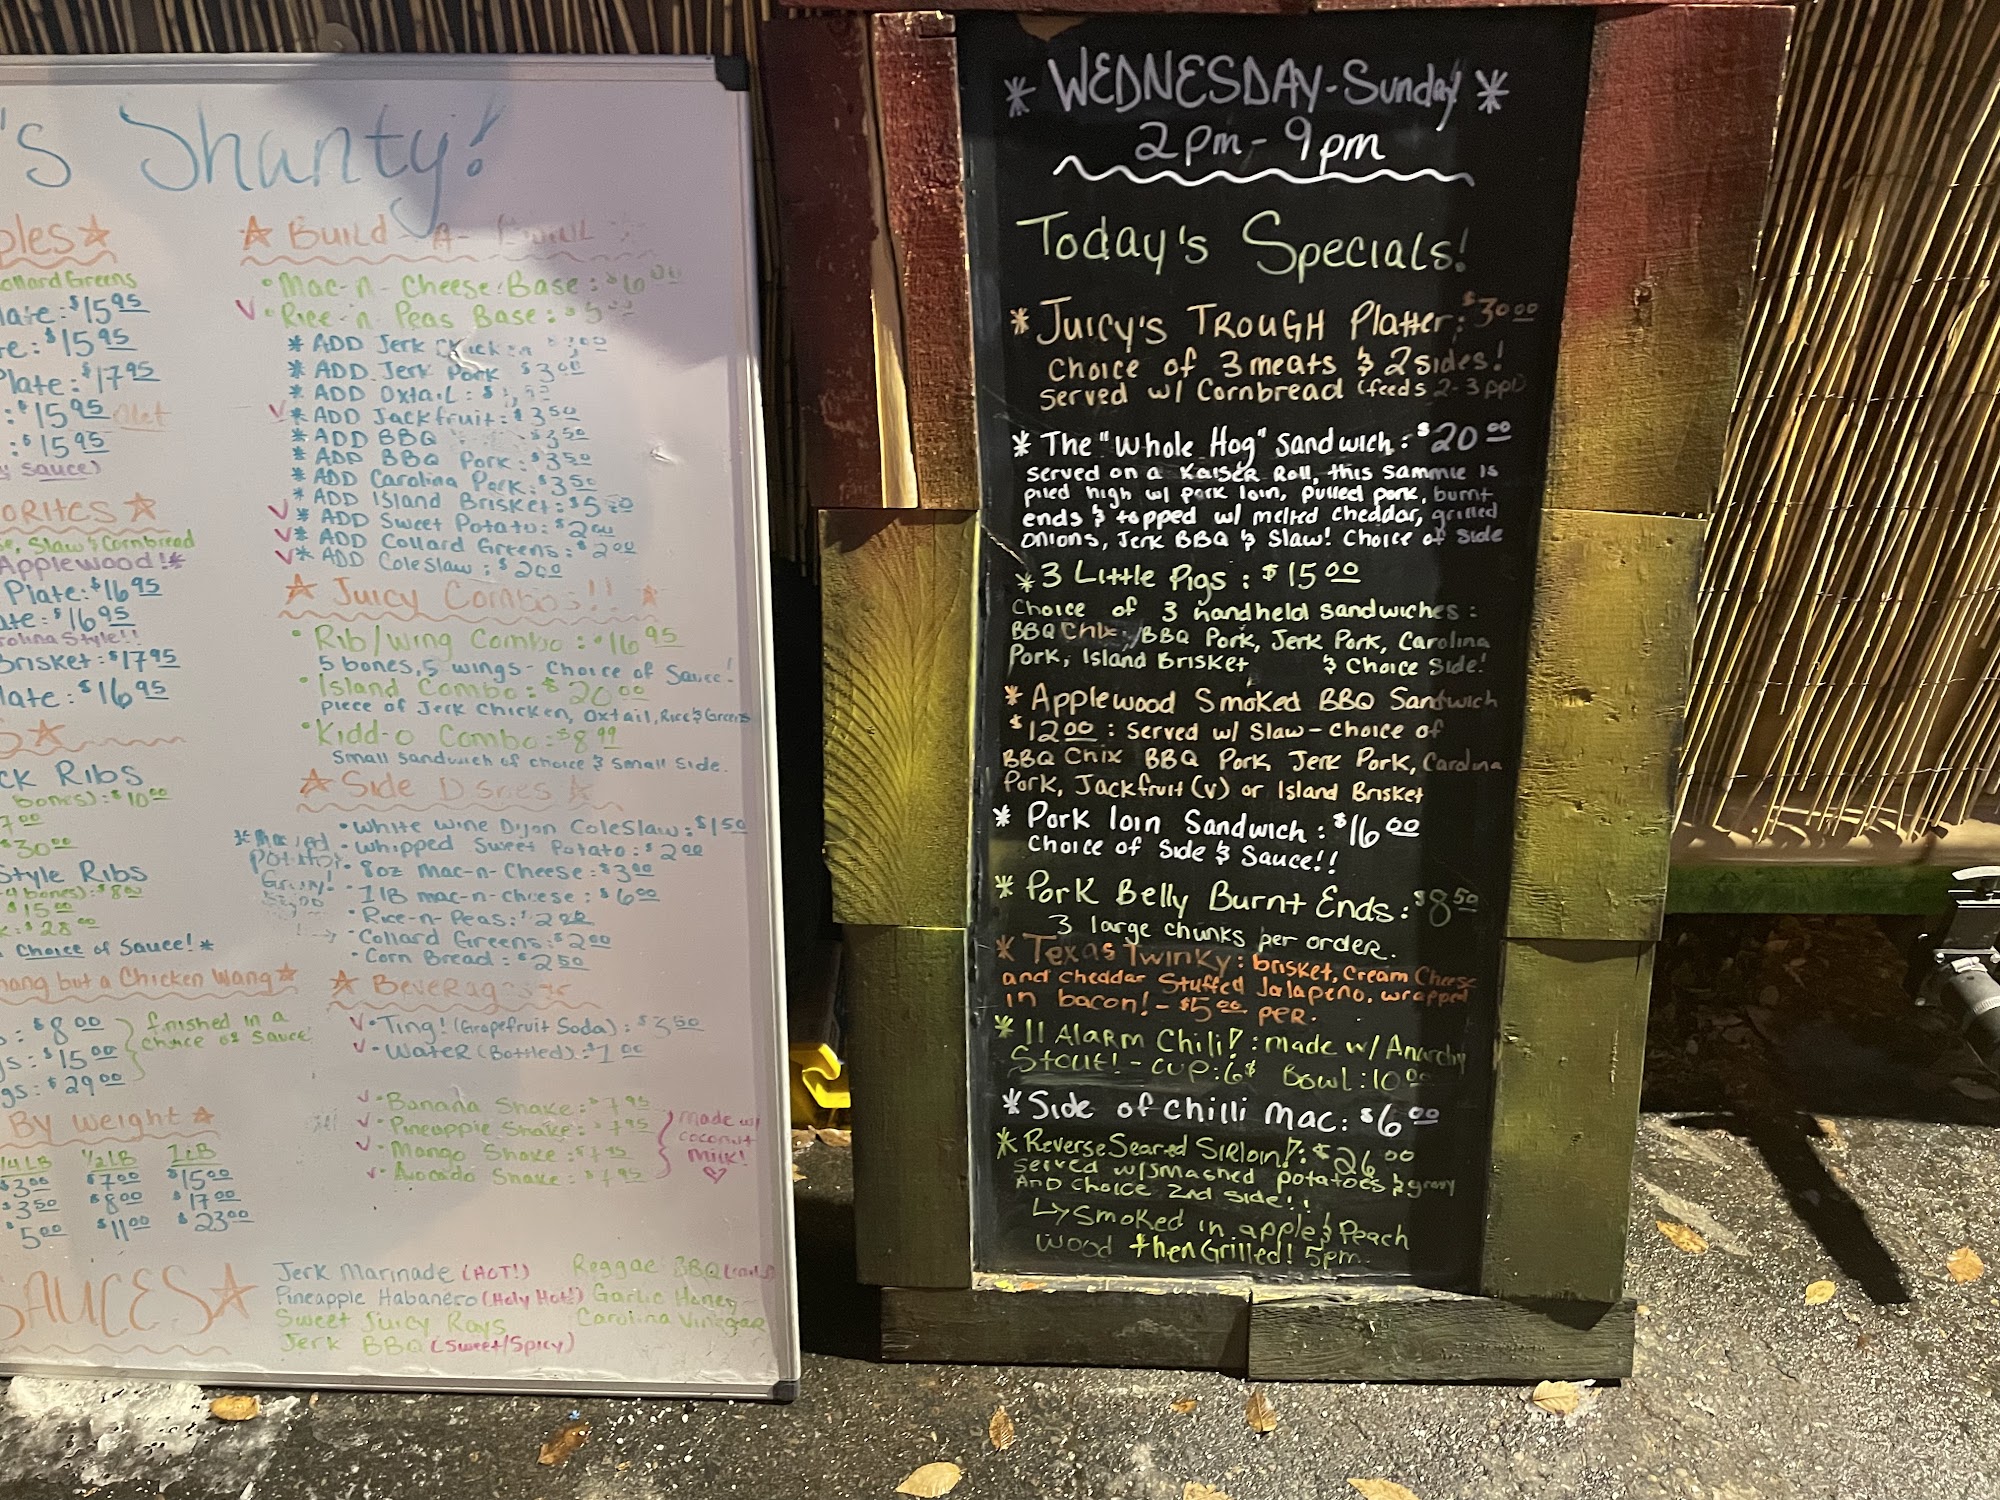 's Shanty!
ples
Collard Greens
late: $15.95
re: $15.95
Plate: $17.95
: $15.95
: $15.95
sauce)
orites
Slaw & Cornbread
Applewood!*
Plate: $16.95
ate: $16.95
rolina Style!!
Brisket: $17.95
late: $16.95
ck Ribs
bones): $10.00
7.00
$30.00
Style Ribs
4 bones): $8.00
$15.00
: $28.00
Choice of Sauce!*
hang but a Chicken Wang
: $8.00
s: $15.00
gs: $29.00
finished in a
choice of sauce
By weight
1/4 LB 1/2 LB 1 LB
$3.00 $7.00 $15.00
$3.50 $8.00 $17.00
$5.00 $11.00 $23.00
SAUCES
Build - A -
• Mac-n-Cheese Base: $6.00
V • Rice-n-Peas Base: $5
* ADD Jerk Chicken
* ADD Jerk Pork $3.00
* ADD Oxtail: $
V * ADD Jackfruit: $3.50
* ADD BBQ $3.50
* ADD BBQ Pork: $3.50
* ADD Carolina Pork: $3.50
* ADD Island Brisket: $5.50
V * ADD Sweet Potato: $2.00
V * ADD Collard Greens: $2.00
V * ADD Coleslaw: $2.00
Juicy Combos!!
• Rib/Wing Combo: $16.95
5 bones, 5 wings - Choice of Sauce!
• Island Combo: $20.00
piece of Jerk Chicken, Oxtail, Rice & Greens
• Kidd-O Combo: $8.99
Small Sandwich of choice & Small Side.
Side Dishes
• White Wine Dijon Coleslaw: $1.50
• Whipped Sweet Potato: $2.00
• 8oz Mac-n-Cheese: $3.00
• 1 LB mac-n-cheese: $6.00
• Rice-n-Peas: $2.00
• Collard Greens: $2.00
• Corn Bread: $2.50
Beverages
V • Ting! (Grapefruit Soda): $3.50
V • Water (Bottled): $1.00
V • Banana Shake: $7.95
V • Pineapple Shake: $7.95
V • Mango Shake: $7.95
V • Avocado Shake: $7.95
made w/
coconut
milk!
Jerk Marinade (HOT!)
Pineapple Habanero (Holy Hot!)
Sweet Juicy Rays
Jerk BBQ (Sweet/Spicy)
Reggae BBQ
Garlic Honey
Carolina Vinegar
* WEDNESDAY - Sunday *
2pm - 9pm
Today's Specials!
* Juicy's TROUGH Platter: $30.00
Choice of 3 meats & 2 sides!
Served w/ Cornbread (feeds 2-3 ppl)
* The "Whole Hog" Sandwich: $20.00
Served on a Kaiser Roll, this Sammie is
piled high w/ pork loin, pulled pork, burnt
ends & topped w/ melted cheddar, grilled
onions, Jerk BBQ & Slaw! Choice of side
* 3 Little Pigs: $15.00
Choice of 3 handheld sandwiches:
BBQ Chix, BBQ Pork, Jerk Pork, Carolina
Pork, Island Brisket & Choice Side!
* Applewood Smoked BBQ Sandwich
$12.00: Served w/ Slaw - Choice of
BBQ Chix BBQ Pork, Jerk Pork, Carolina
Pork, Jackfruit (v) or Island Brisket
* Pork loin Sandwich: $16.00
Choice of Side & Sauce!!
* Pork Belly Burnt Ends: $8.50
3 large chunks per order.
* Texas Twinky: brisket, Cream Cheese
and cheddar Stuffed Jalapeño, wrapped
in bacon! - $5.00 per.
* 11 Alarm Chili!: made w/ Anarchy
Stout! - cup: 6$ Bowl: 10.00
* Side of Chilli Mac: $6.00
* Reverse Seared Sirloin!: $26.00
served w/ smashed potatoes & gravy
And choice 2nd side!!
↳ Smoked in apple & Peach
wood then Grilled! 5pm.